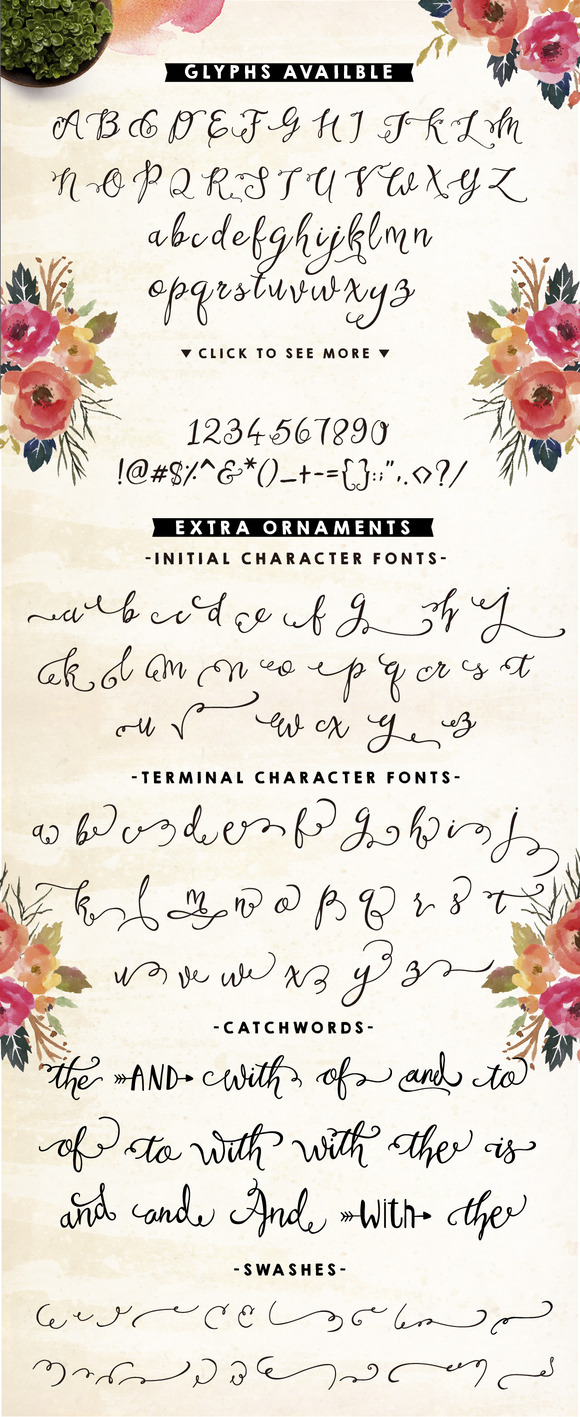 GLYPHS AVAILBLE
A B C D E F G H I J K L M
N O P Q R S T U V W X Y Z
a b c d e f g h i j k l m n
o p q r s t u v w x y z
▼ CLICK TO SEE MORE ▼
1 2 3 4 5 6 7 8 9 0
!@#$%^&*()_+-={}:;",.<>?/
EXTRA ORNAMENTS
-INITIAL CHARACTER FONTS-
a b c d e f g h j
k l m n o p q r s t
u v w x y z
-TERMINAL CHARACTER FONTS-
a b c d e f g h i j
k l m n o p q r s t
u v w x y z
-CATCHWORDS-
the AND with of and to
of to with with the is
and and And with the
-SWASHES-